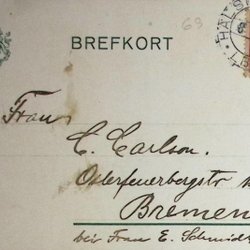 69
BREFKORT
Frau
C. Carlson.
Osterfeuerbergstr
Bremen
bei Frau E. Schmidt